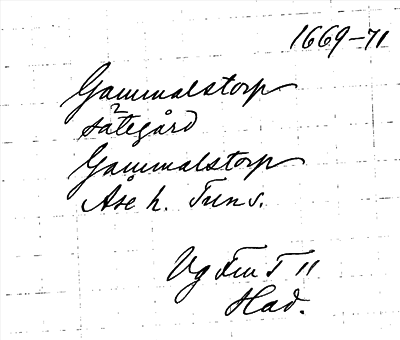 1669-71
Gammalstorp
2
sätegård
Gammalstorp
Åse h. Tuns.
Vg Fm T 11
Had.